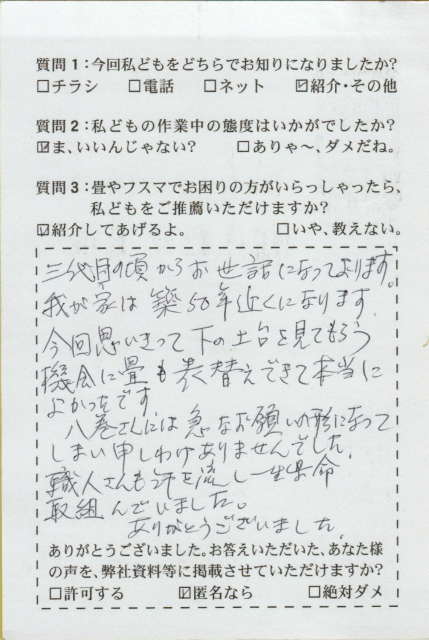 質問1:今回私どもをどちらでお知りになりましたか?
□チラシ □電話 □ネット ☑紹介・その他
質問2:私どもの作業中の態度はいかがでしたか?
☑ま、いいんじゃない? □ありゃ~、ダメだね。
質問3:畳やフスマでお困りの方がいらっしゃったら、
私どもをご推薦いただけますか?
☑紹介してあげるよ。 □いや、教えない。
三代目の頃からお世話になっております。
我が家は築50年近くになります。
今回思いきって下の土台を見てもらう
機会に畳も表替えできて本当に
よかったです。
八巻さんには急なお願いの形になって
しまい申しわけありませんでした。
職人さんも汗を流し一生県命
取組んでいました。
ありがとうございました。
ありがとうございました。お答えいただいた、あなた様
の声を、弊社資料等に掲載させていただけますか?
□許可する ☑匿名なら □絶対ダメ